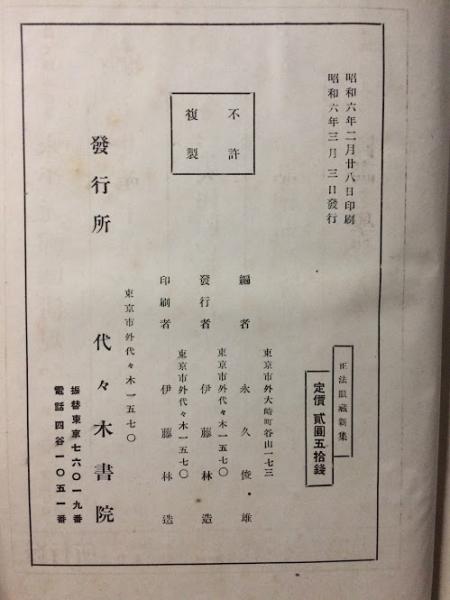 昭和六年二月廿八日印刷
昭和六年三月三日發行
正法眼蔵新集
定價 貳圓五拾錢
不許
複製
東京市外大崎町谷山一七三
編者 永久俊雄
東京市外代々木一五七〇
發行者 伊藤林造
東京市外代々木一五七〇
印刷者 伊藤林造
東京市外代々木一五七〇
發行所 代々木書院
振替東京七六〇一九番
電話四谷一〇五一番